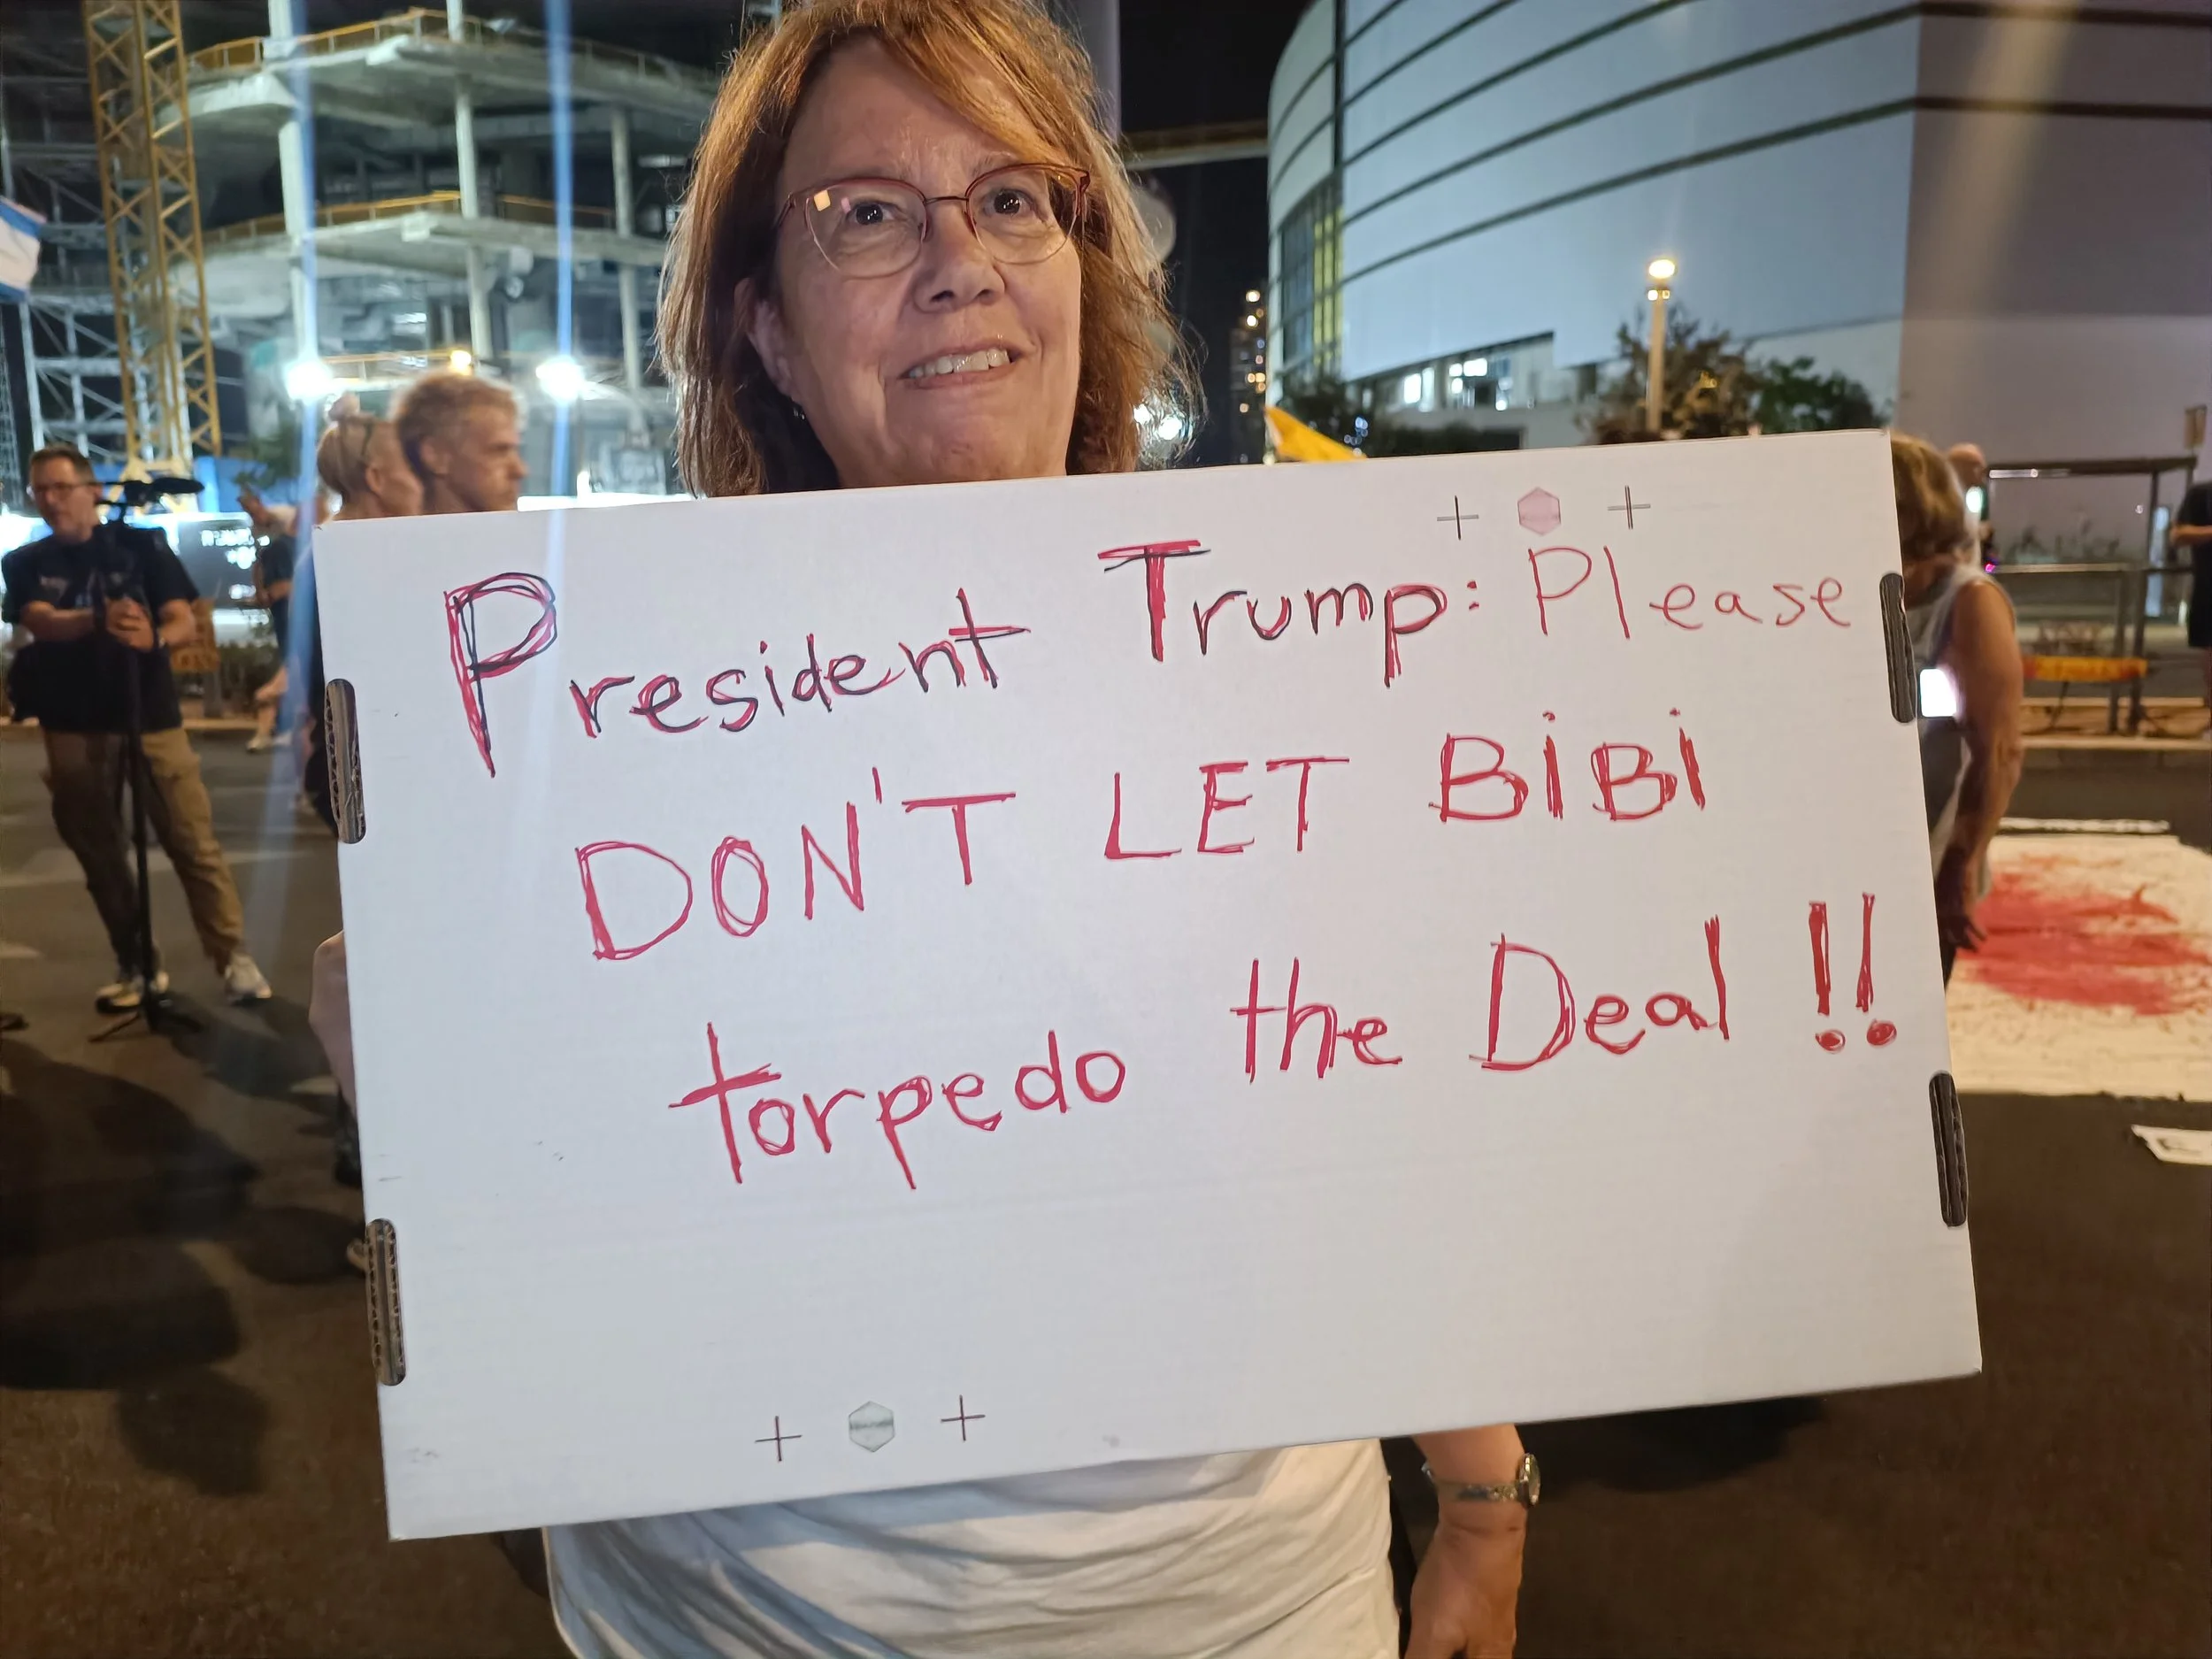 President Trump: Please
DON'T LET BiBi
torpedo the Deal !!